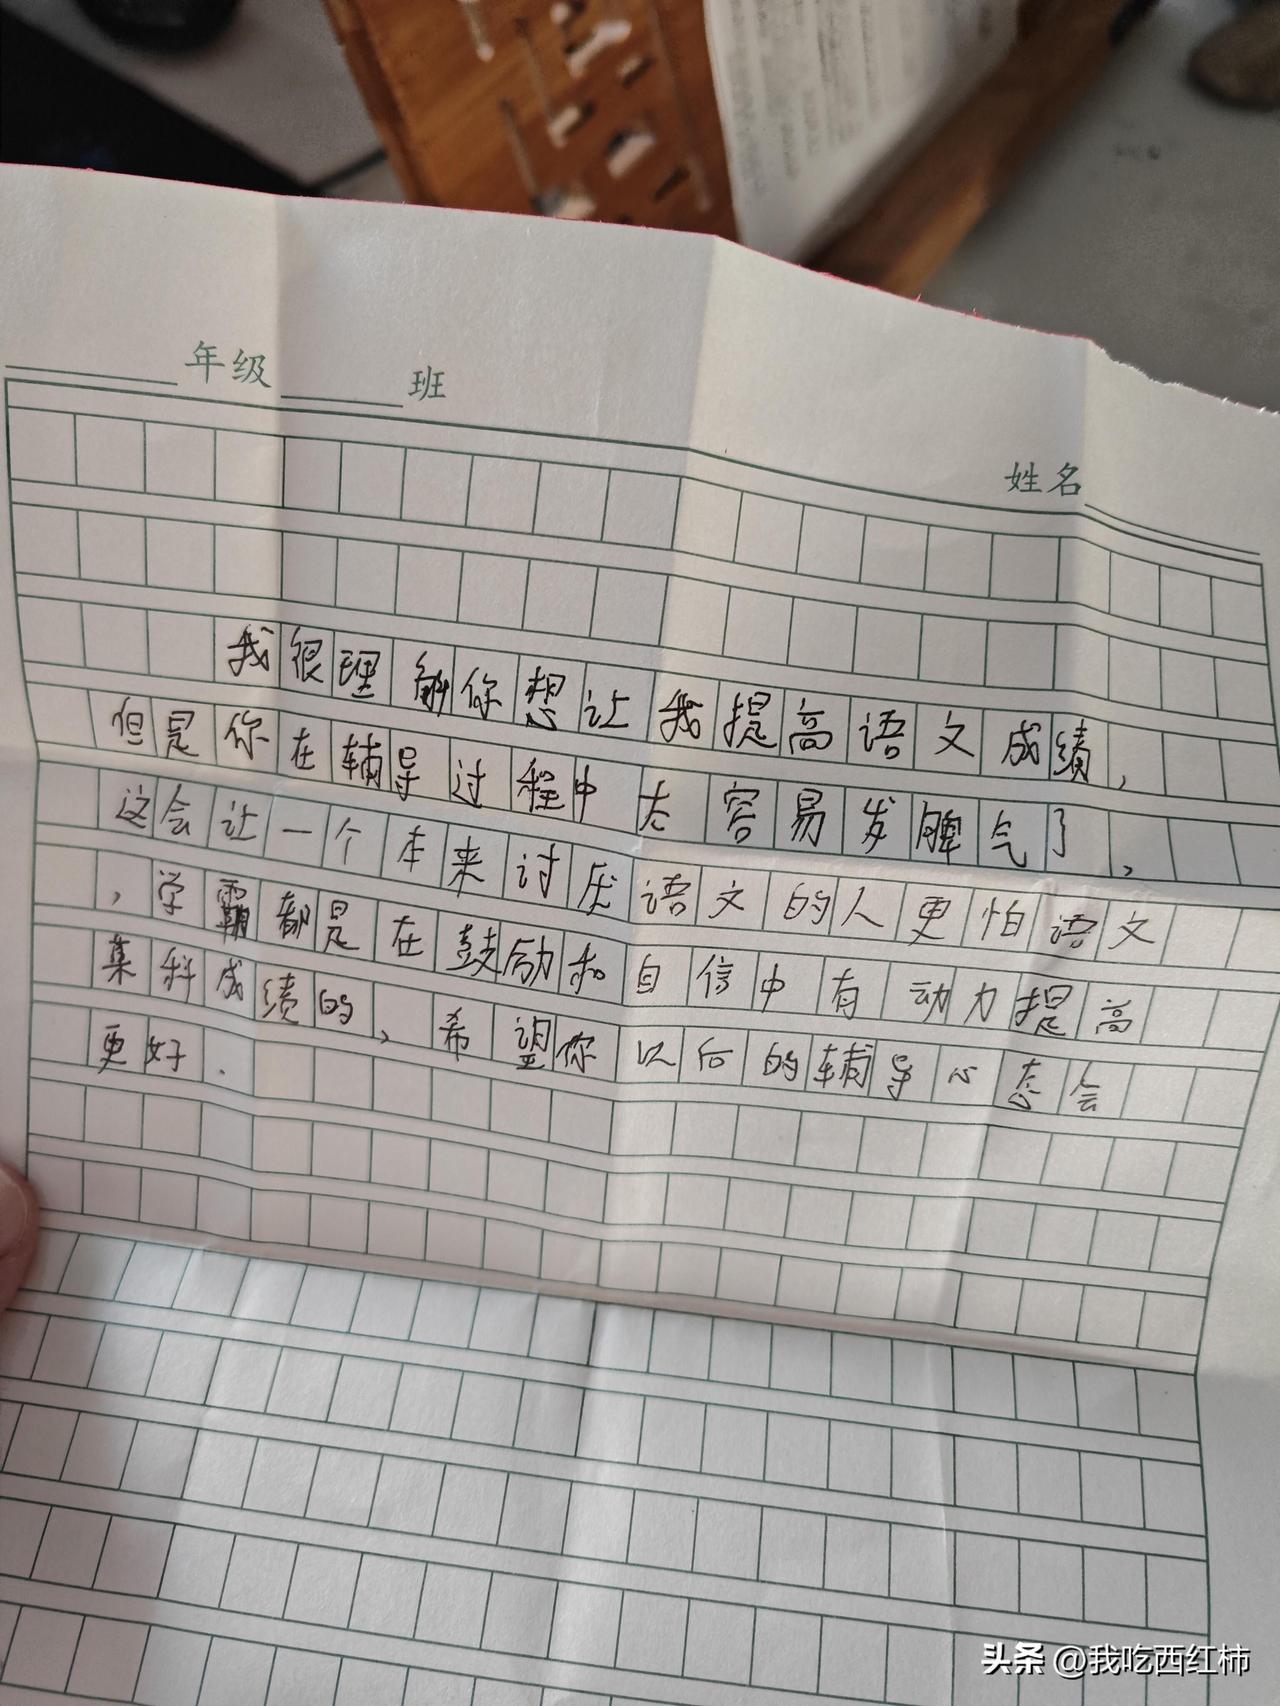 年级 班
姓名
我很理解你想让我提高语文成绩,
但是你在辅导过程中太容易发脾气了,
这会让一个本来讨厌语文的人更怕语文
,学霸都是在鼓励和自信中有动力提高
某科成绩的,希望你以后的辅导心态会
更好.
头条 @我吃西红柿